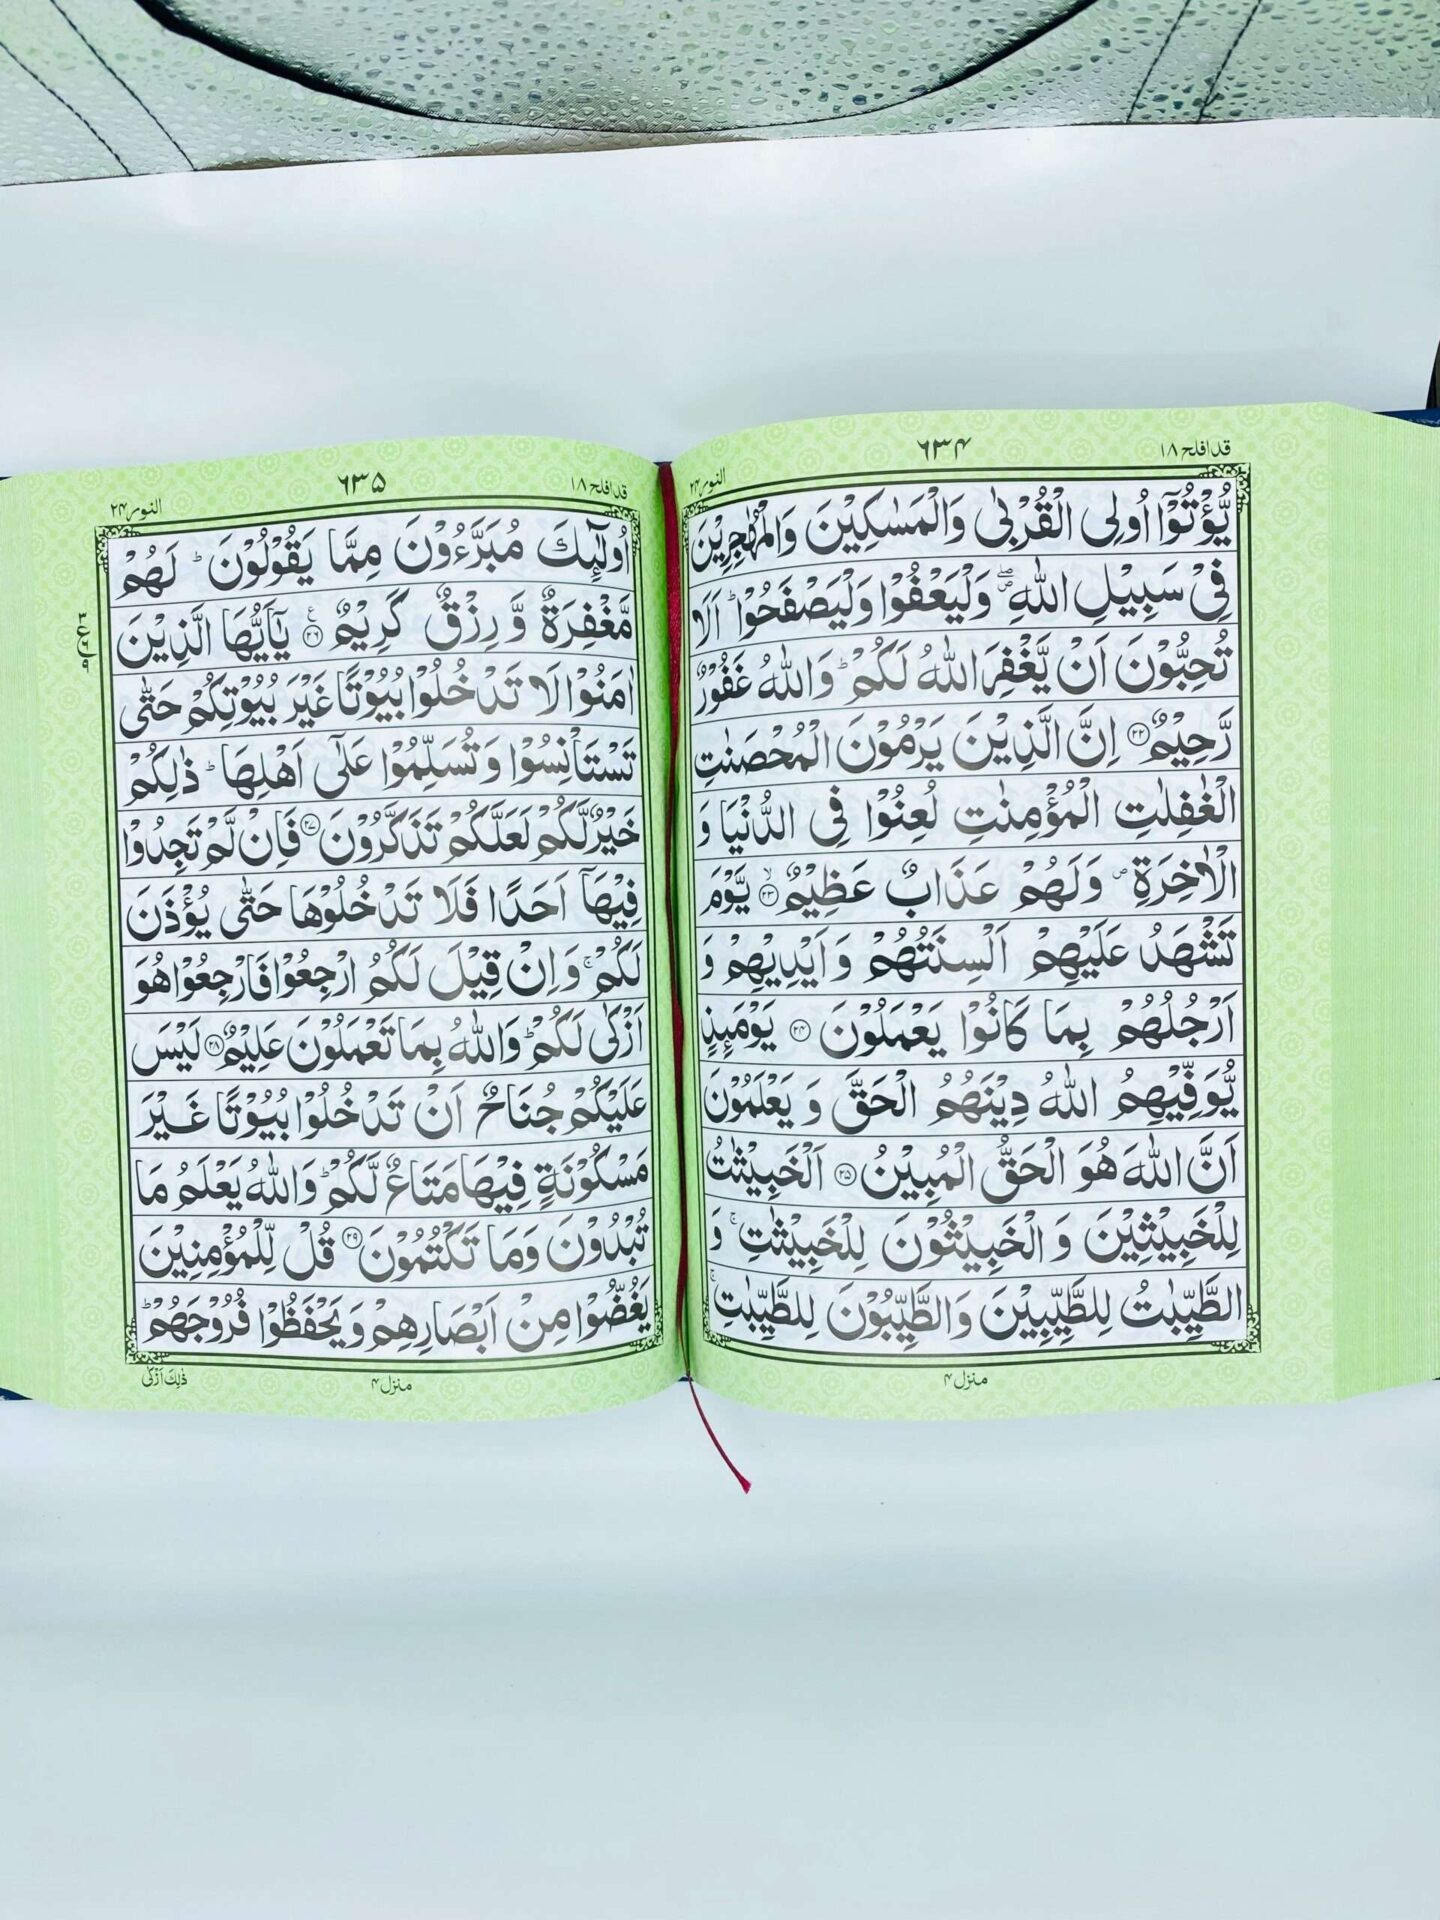 قد افلح ١٨
٦٣۴
النور ٢۴
يُّؤْتُوْٓا اُولِي الْقُرْبٰى وَالْمَسٰكِيْنَ وَالْمُهٰجِرِيْنَ
فِيْ سَبِيْلِ اللّٰهِ ۖ وَلْيَعْفُوْا وَلْيَصْفَحُوْا ؕ اَلَا
تُحِبُّوْنَ اَنْ يَّغْفِرَ اللّٰهُ لَكُمْ ؕ وَاللّٰهُ غَفُوْرٌ
رَّحِيْمٌ ۝٢٢ اِنَّ الَّذِيْنَ يَرْمُوْنَ الْمُحْصَنٰتِ
الْغٰفِلٰتِ الْمُؤْمِنٰتِ لُعِنُوْا فِي الدُّنْيَا وَ
الْاٰخِرَةِ ۪ وَلَهُمْ عَذَابٌ عَظِيْمٌ ۝٢٣ۙ يَّوْمَ
تَشْهَدُ عَلَيْهِمْ اَلْسِنَتُهُمْ وَاَيْدِيْهِمْ وَ
اَرْجُلُهُمْ بِمَا كَانُوْا يَعْمَلُوْنَ ۝٢۴ يَوْمَئِذٍ
يُّوَفِّيْهِمُ اللّٰهُ دِيْنَهُمُ الْحَقَّ وَ يَعْلَمُوْنَ
اَنَّ اللّٰهَ هُوَ الْحَقُّ الْمُبِيْنُ ۝٢۵ اَلْخَبِيْثٰتُ
لِلْخَبِيْثِيْنَ وَ الْخَبِيْثُوْنَ لِلْخَبِيْثٰتِ ۚ وَ
الطَّيِّبٰتُ لِلطَّيِّبِيْنَ وَالطَّيِّبُوْنَ لِلطَّيِّبٰتِ ۚ
منزل ۴
قد افلح ١٨
٦٣۵
النور ٢۴
اُولٰٓئِكَ مُبَرَّءُوْنَ مِمَّا يَقُوْلُوْنَ ؕ لَهُمْ
مَّغْفِرَةٌ وَّ رِزْقٌ كَرِيْمٌ ۝٢٦ۧ يٰٓاَيُّهَا الَّذِيْنَ
اٰمَنُوْا لَا تَدْخُلُوْا بُيُوْتًا غَيْرَ بُيُوْتِكُمْ حَتّٰى
تَسْتَاْنِسُوْا وَتُسَلِّمُوْا عَلٰٓى اَهْلِهَا ؕ ذٰلِكُمْ
خَيْرٌ لَّكُمْ لَعَلَّكُمْ تَذَكَّرُوْنَ ۝٢٧ فَاِنْ لَّمْ تَجِدُوْا
فِيْهَآ اَحَدًا فَلَا تَدْخُلُوْهَا حَتّٰى يُؤْذَنَ
لَكُمْ ۚ وَاِنْ قِيْلَ لَكُمُ ارْجِعُوْا فَارْجِعُوْا هُوَ
اَزْكٰى لَكُمْ ؕ وَاللّٰهُ بِمَا تَعْمَلُوْنَ عَلِيْمٌ ۝٢٨ لَيْسَ
عَلَيْكُمْ جُنَاحٌ اَنْ تَدْخُلُوْا بُيُوْتًا غَيْرَ
مَسْكُوْنَةٍ فِيْهَا مَتَاعٌ لَّكُمْ ؕ وَاللّٰهُ يَعْلَمُ مَا
تُبْدُوْنَ وَمَا تَكْتُمُوْنَ ۝٢٩ قُلْ لِّلْمُؤْمِنِيْنَ
يَغُضُّوْا مِنْ اَبْصَارِهِمْ وَيَحْفَظُوْا فُرُوْجَهُمْ ؕ
منزل ۴
ذٰلِكَ اَزْكٰى